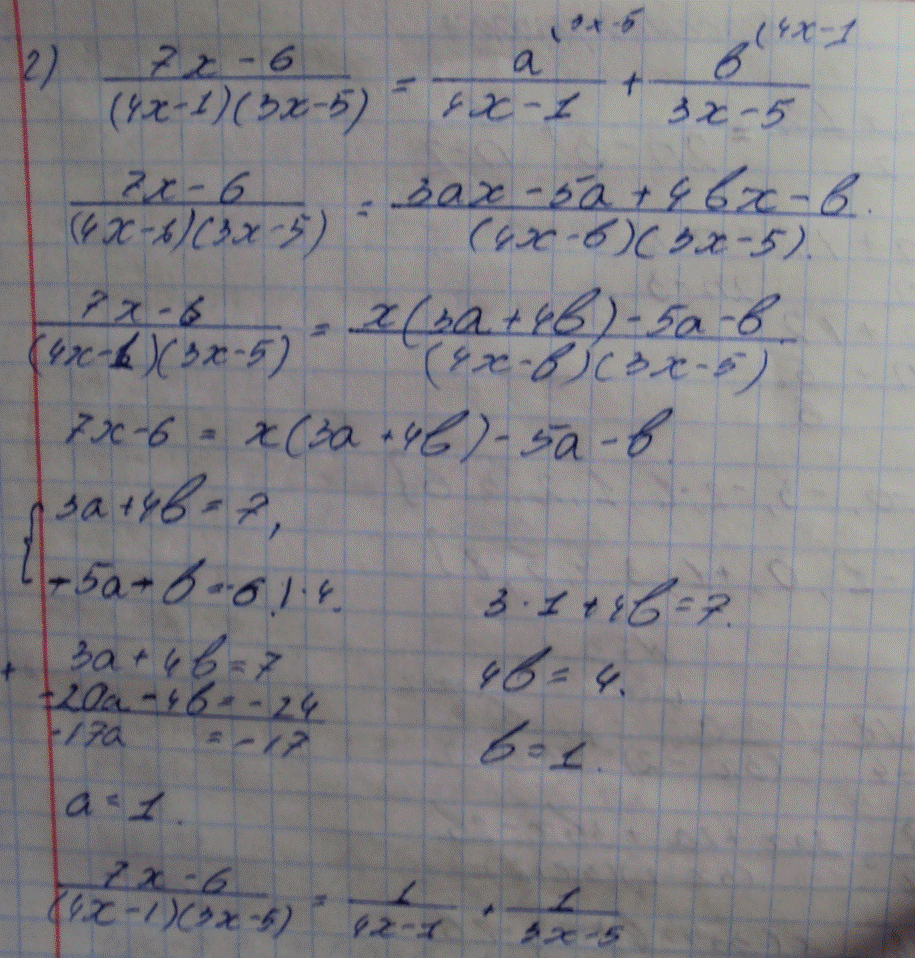 2) (7x-6)/((4x-1)(3x-5)) = a^(3x-5/(4x-1) + в^(4x-1/(3x-5)
(7x-6)/((4x-1)(3x-5)) = (3ax-5a+4вx-в)/((4x-в)(3x-5)).
(7x-6)/((4x-1)(3x-5)) = (x(3a+4в)-5a-в)/((4x-в)(3x-5))
7x-6 = x(3a+4в)-5a-в.
{ 3a+4в=7,
-5a-в=-6 |·4.
3·1+4в=7.
+ 3a+4в=7
4в=4.
-20a-4в=-24
-17a =-17
в=1.
a=1.
(7x-6)/((4x-1)(3x-5)) = 1/(4x-1) + 1/(3x-5)